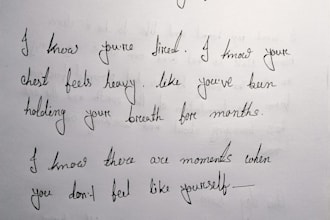 I know you're tired. I know your
chest feels heavy. like you've been
holding your breath for months.
I know there are moments when
you don't feel like yourself—